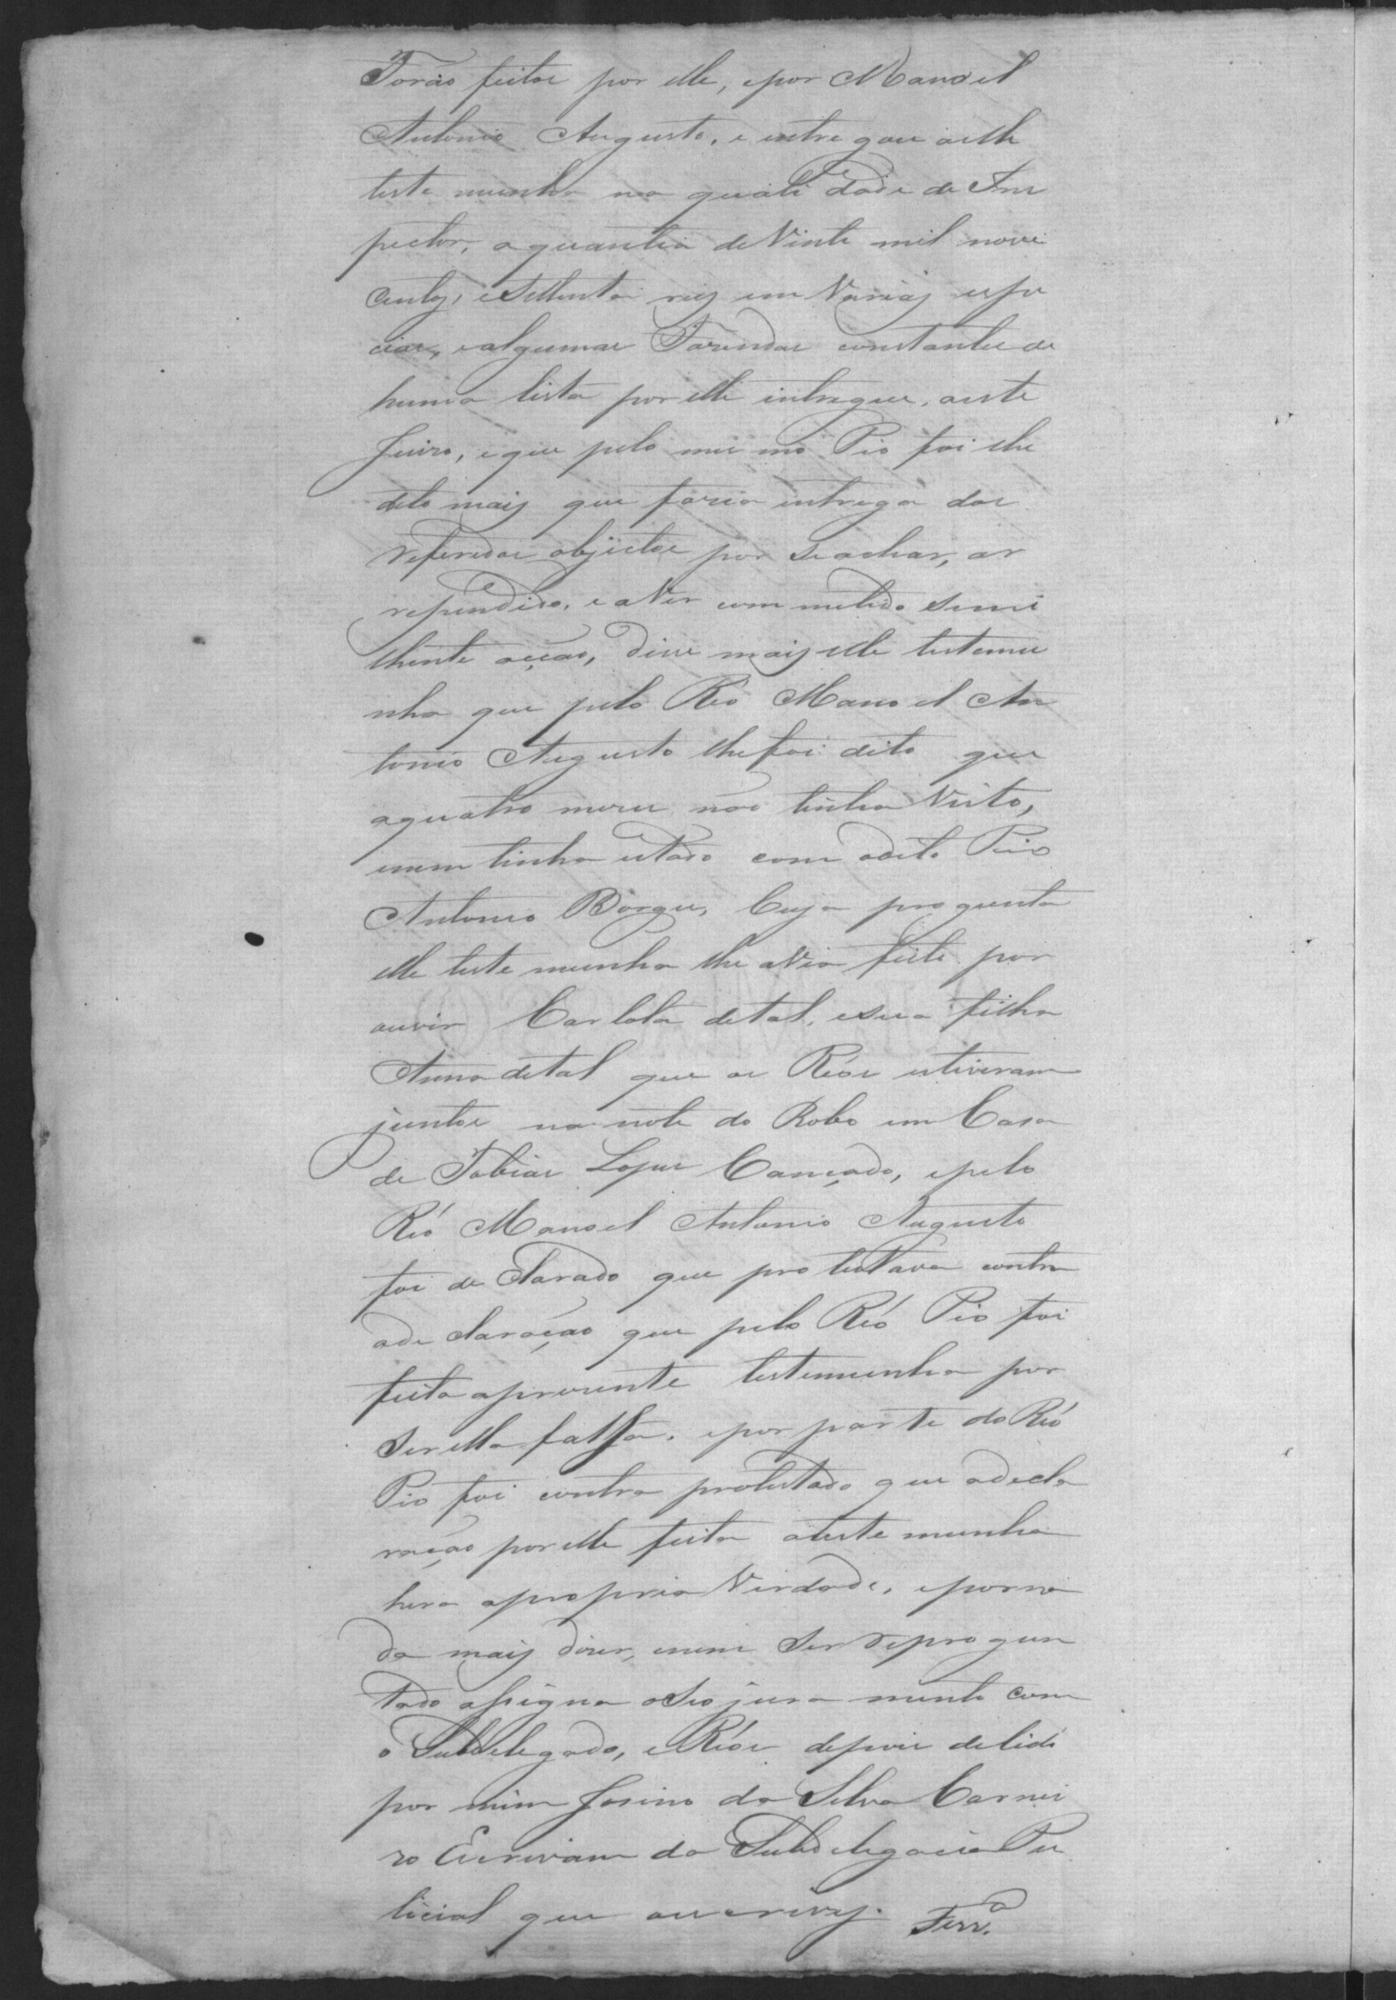 Forão feitos por elle, e por Manoel
Antonio Augusto, e entregou a elle
teste munha na quali dade de Ins
pector, a quantia de Vinte mil nove
centos, e settenta reis em Varias espe
cias, e algumas Fazendas constantes de
huma lista por elle intregue, a este
Juizo, e que pelo mes mo Pio foi lhe
dito mais que fazia intrega dos
referidos objectos por se achar, ar
rependido, e aver com metido simi
lhente acção, disse mais elle testemu
nha que pelo Réo Manoel An
tonio Augusto lhe foi dito que
a quatro mezes não tinha Visto,
e nem tinha estado com o dito Pio
Antonio Borges, Cuja progunta
elle teste munha lhe avia feito por
ouvir Carlota de tal, e sua filha
Anna de tal que os Réos estiveram
juntos na note do Robo em Casa
de Tobias Lopes Cançado, e pelo
Réo Manoel Antonio Augusto
foi de Clarado que pro testava contra
a de claração que pelo Réo Pio foi
feita a prezente testemunha por
Ser ella falsa, e por parte do Réo
Pio foi contra protestado que a decla
ração por elle feita a teste munha
hera a propria Verdade, e por na
da mais dizer, e nem Ser repro gun
tado assigna o Seo jura mento com
o Subdelegado, e Réos depois de lido
por mim Josino da Silva Carnei
ro Escrivam da Subdelegacia Po
licial que o escrevy. Ferr.ª